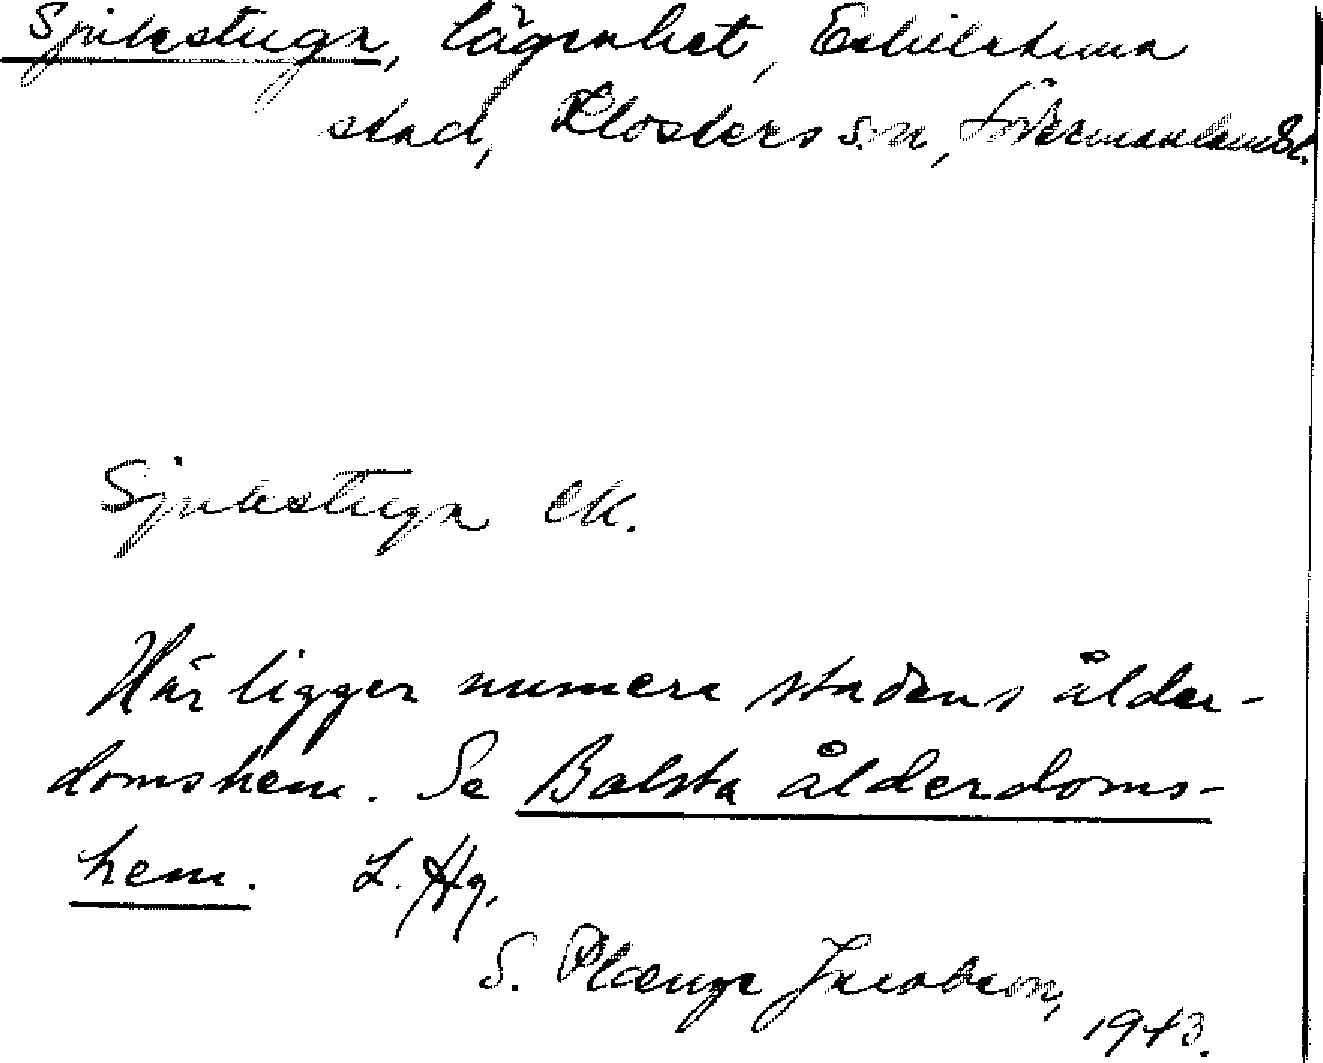 Sjukstuga, lägenhet, Eskilstuna
stad, Klosters sn, Södermanlands l.
Sjukstuga EK.
Här ligger numera stadens ålder-
domshem. Se Balsta ålderdoms-
hem. L. Hg.
S. Plænge Jacobson,
1943.